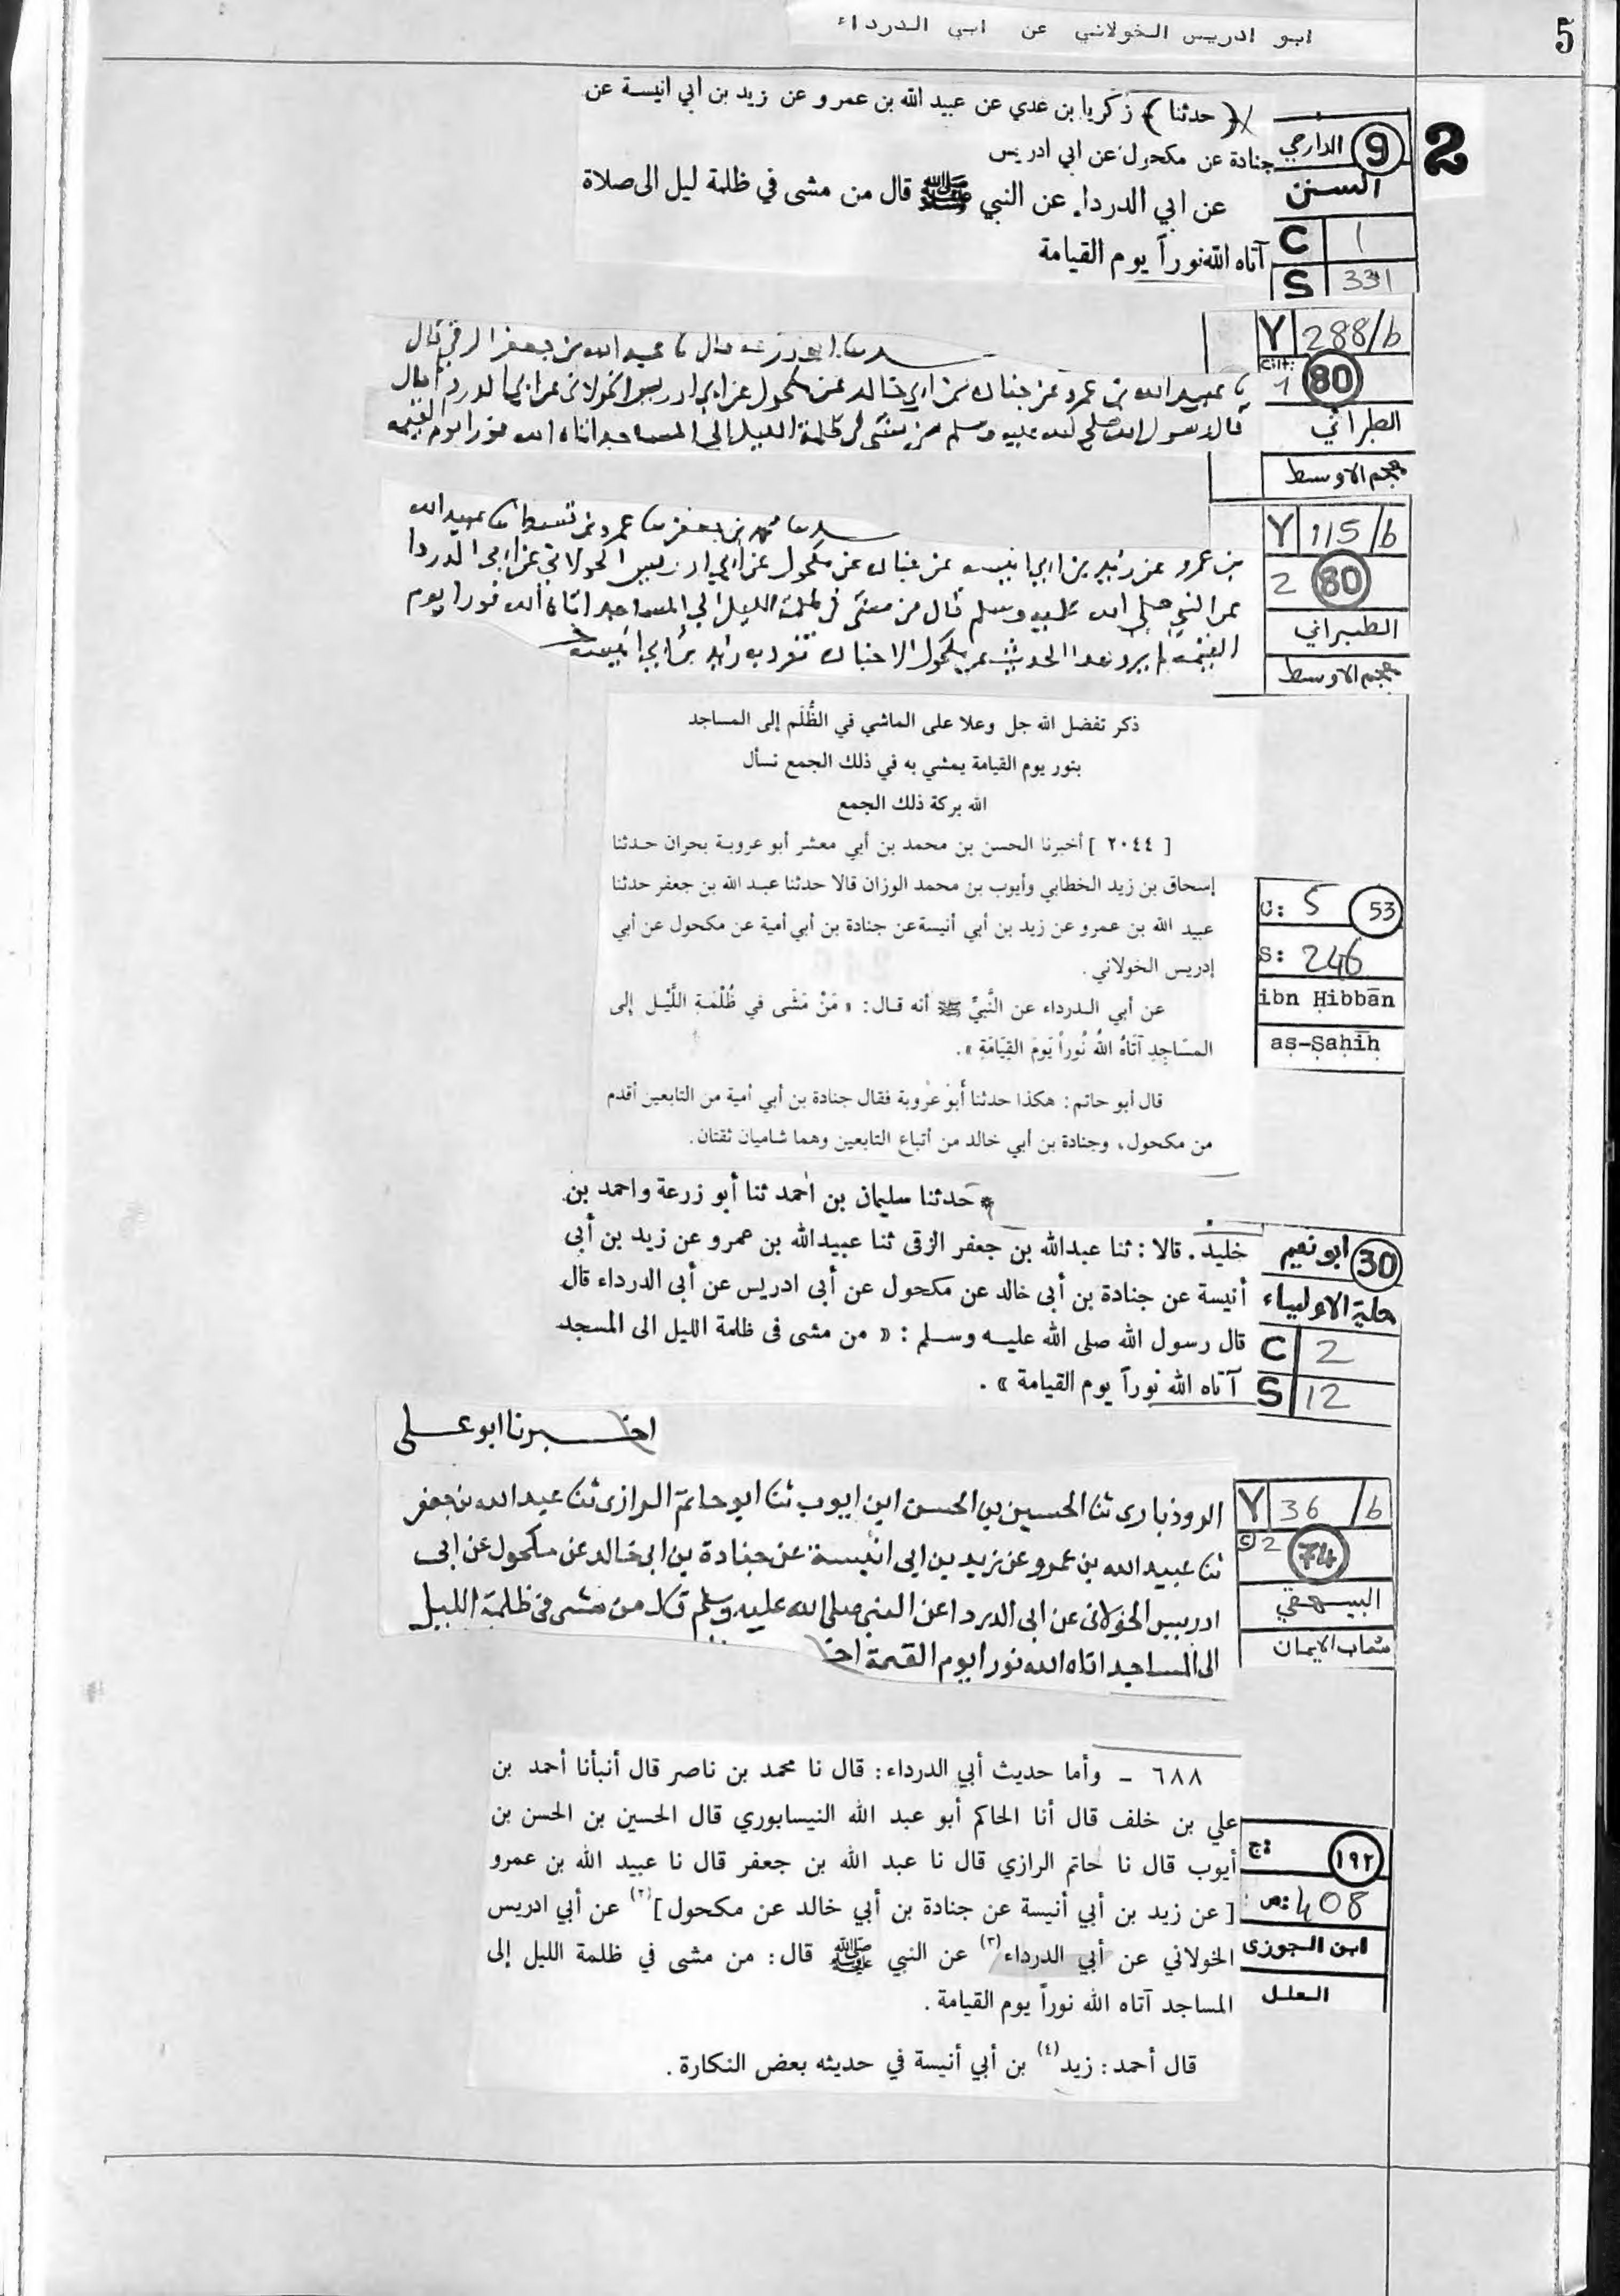 5
ابو ادريس الخولاني عن ابي الدرداء
2
9 الدارمي
السنن
C 1
S 331
﴿ حدثنا ﴾ زكريا بن عدي عن عبيد الله بن عمرو عن زيد بن أبي انيسة عن
جنادة عن مكحول عن ابي ادريس
عن ابي الدرداء عن النبي ﷺ قال من مشى في ظلمة ليل الى صلاة
آتاه الله نوراً يوم القيامة
Y 288/b
Cilt: 1 80
الطبراني
معجم الاوسط
حدثنا ابو زرعة قال نا عبد الله بن جعفر الرقي قال
نا عبيد الله بن عمرو عن جنادة بن ابي خالد عن مكحول عن ابي ادريس الخولاني عن ابي الدرداء قال
قال رسول الله صلى الله عليه وسلم من مشى في ظلمة الليل الى المساجد اتاه الله نورا يوم القيمة
Y 115/b
2 80
الطبراني
معجم الاوسط
حدثنا محمد بن جعفر نا عمرو بن قسط نا عبيد الله
بن عمرو عن زيد بن ابي انيسه عن جناده عن مكحول عن ابي ادريس الخولاني عن ابي الدردا
عن النبي صلى الله عليه وسلم قال من مشى في ظلمة الليل الي المساجد اتاه الله نورا يوم
القيمة لم يرو هذا الحديث عن مكحول الا جناده تفرد به زيد بن ابي انيسه
ذكر تفضل الله جل وعلا على الماشي في الظُّلَم إلى المساجد
بنور يوم القيامة يمشي به في ذلك الجمع نسأل
الله بركة ذلك الجمع
C: 5 53
S: 246
ibn Ḥibbān
aṣ-Ṣaḥīḥ
[ ٢٠٤٤ ] أخبرنا الحسن بن محمد بن أبي معشر أبو عروبة بحران حدثنا
إسحاق بن زيد الخطابي وأيوب بن محمد الوزان قالا حدثنا عبد الله بن جعفر حدثنا
عبيد الله بن عمرو عن زيد بن أبي أنيسة عن جنادة بن أبي أمية عن مكحول عن أبي
إدريس الخولاني .
عن أبي الدرداء عن النَّبيِّ ﷺ أنه قال: « مَنْ مَشَى في ظُلْمَةِ اللَّيْلِ إلى
المسَاجِدِ آتَاهُ اللهُ نُوراً يَومَ القِيَامَةِ ».
قال أبو حاتم: هكذا حدثنا أبو عروبة فقال جنادة بن أبي أمية من التابعين أقدم
من مكحول، وجنادة بن أبي خالد من أتباع التابعين وهما شاميان ثقتان.
30 ابو نعيم
حلية الاولياء
C 2
S 12
* حدثنا سليمان بن أحمد ثنا أبو زرعة واحمد بن
خليد . قالا : ثنا عبدالله بن جعفر الرقى ثنا عبيدالله بن عمرو عن زيد بن أبى
أنيسة عن جنادة بن أبى خالد عن مكحول عن أبى ادريس عن أبى الدرداء قال
قال رسول الله صلى الله عليه وسلم : « من مشى فى ظلمة الليل الى المسجد
آتاه الله نوراً يوم القيامة » .
Y 36/b
C 2 74
البيهقي
شعاب الايمان
اخبرنا ابو على
الروذبارى ثنا الحسين بن الحسن ابن ايوب ثنا ابو حاتم الرازى ثنا عبد الله بن جعفر
ثنا عبيد الله بن عمرو عن زيد بن ابى انيسة عن جنادة بن ابى خالد عن مكحول عن ابى
ادريس الخولانى عن ابى الدرداء عن النبى صلى الله عليه وسلم قال من مشى فى ظلمة الليل
الى المساجد اتاه الله نورا يوم القيمة اخ
١٩٢ ج:
ص: 408
ابن الجوزى
العلل
٦٨٨ ـ وأما حديث أبي الدرداء: قال نا محمد بن ناصر قال أنبأنا أحمد بن
علي بن خلف قال أنا الحاكم أبو عبد الله النيسابوري قال الحسين بن الحسن بن
أيوب قال نا حاتم الرازي قال نا عبد الله بن جعفر قال نا عبيد الله بن عمرو
[ عن زيد بن أبي أنيسة عن جنادة بن أبي خالد عن مكحول ](٢) عن أبي ادريس
الخولاني عن أبي الدرداء(٣) عن النبي ﷺ قال: من مشى في ظلمة الليل إلى
المساجد آتاه الله نوراً يوم القيامة .
قال أحمد: زيد(٤) بن أبي أنيسة في حديثه بعض النكارة .